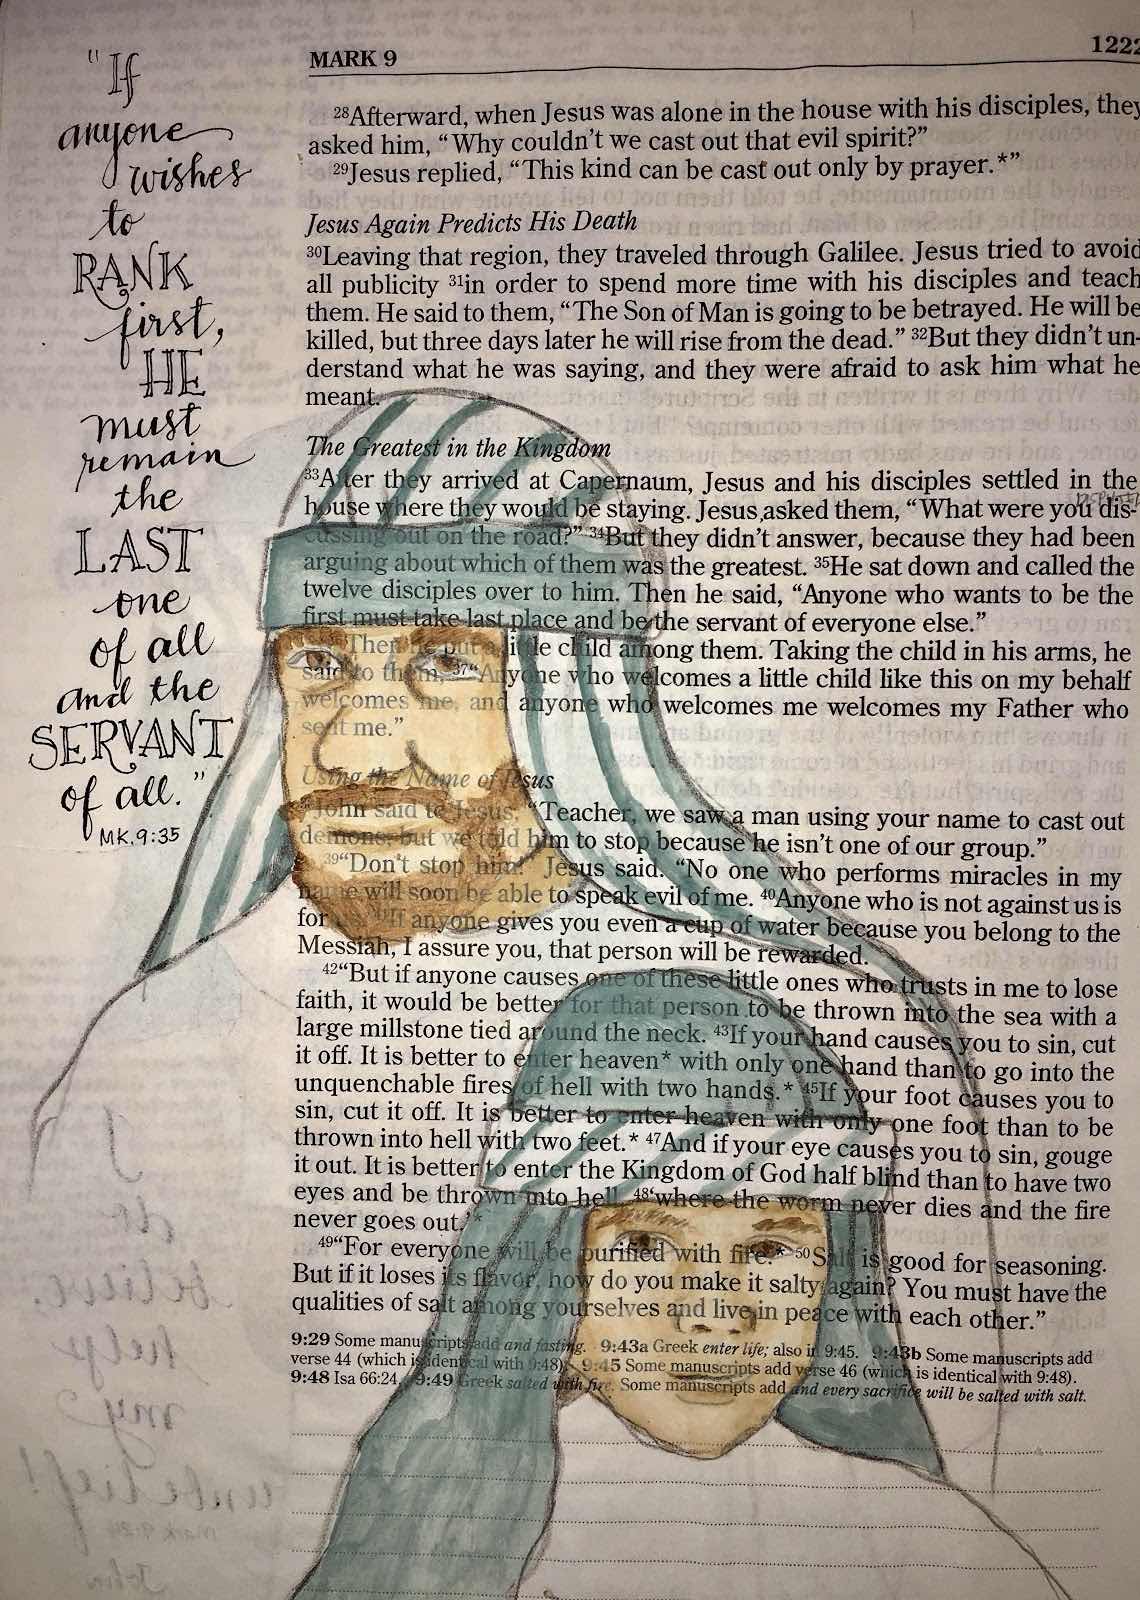 "If
anyone
wishes
to
RANK
first,
HE
must
remain
the
LAST
one
of all
and the
SERVANT
of all."
MK. 9:35
MARK 9
1222
28Afterward, when Jesus was alone in the house with his disciples, they
asked him, “Why couldn’t we cast out that evil spirit?”
29Jesus replied, “This kind can be cast out only by prayer.*”
Jesus Again Predicts His Death
30Leaving that region, they traveled through Galilee. Jesus tried to avoid
all publicity 31in order to spend more time with his disciples and teach
them. He said to them, “The Son of Man is going to be betrayed. He will be
killed, but three days later he will rise from the dead.” 32But they didn’t un-
derstand what he was saying, and they were afraid to ask him what he
meant.
The Greatest in the Kingdom
33After they arrived at Capernaum, Jesus and his disciples settled in the
house where they would be staying. Jesus asked them, “What were you dis-
cussing out on the road?” 34But they didn’t answer, because they had been
arguing about which of them was the greatest. 35He sat down and called the
twelve disciples over to him. Then he said, “Anyone who wants to be the
first must take last place and be the servant of everyone else.”
Then he put a little child among them. Taking the child in his arms, he
said to them, 37“Anyone who welcomes a little child like this on my behalf
welcomes me, and anyone who welcomes me welcomes my Father who
sent me.”
Using the Name of Jesus
John said to Jesus, “Teacher, we saw a man using your name to cast out
demons, but we told him to stop because he isn’t one of our group.”
39“Don’t stop him!” Jesus said. “No one who performs miracles in my
name will soon be able to speak evil of me. 40Anyone who is not against us is
for If anyone gives you even a cup of water because you belong to the
Messiah, I assure you, that person will be rewarded.
42“But if anyone causes one of these little ones who trusts in me to lose
faith, it would be better for that person to be thrown into the sea with a
large millstone tied around the neck. 43If your hand causes you to sin, cut
it off. It is better to enter heaven* with only one hand than to go into the
unquenchable fires of hell with two hands.* 45If your foot causes you to
sin, cut it off. It is better to enter heaven with only one foot than to be
thrown into hell with two feet.* 47And if your eye causes you to sin, gouge
it out. It is better to enter the Kingdom of God half blind than to have two
eyes and be thrown into hell, 48‘where the worm never dies and the fire
never goes out.’*
49“For everyone will be purified with fire.* 50Salt is good for seasoning.
But if it loses its flavor, how do you make it salty again? You must have the
qualities of salt among yourselves and live in peace with each other.”
9:29 Some manuscripts add and fasting. 9:43a Greek enter life; also in 9:45. 9:43b Some manuscripts add
verse 44 (which is identical with 9:48). 9:45 Some manuscripts add verse 46 (which is identical with 9:48).
9:48 Isa 66:24. 9:49 Greek salted with fire. Some manuscripts add and every sacrifice will be salted with salt.